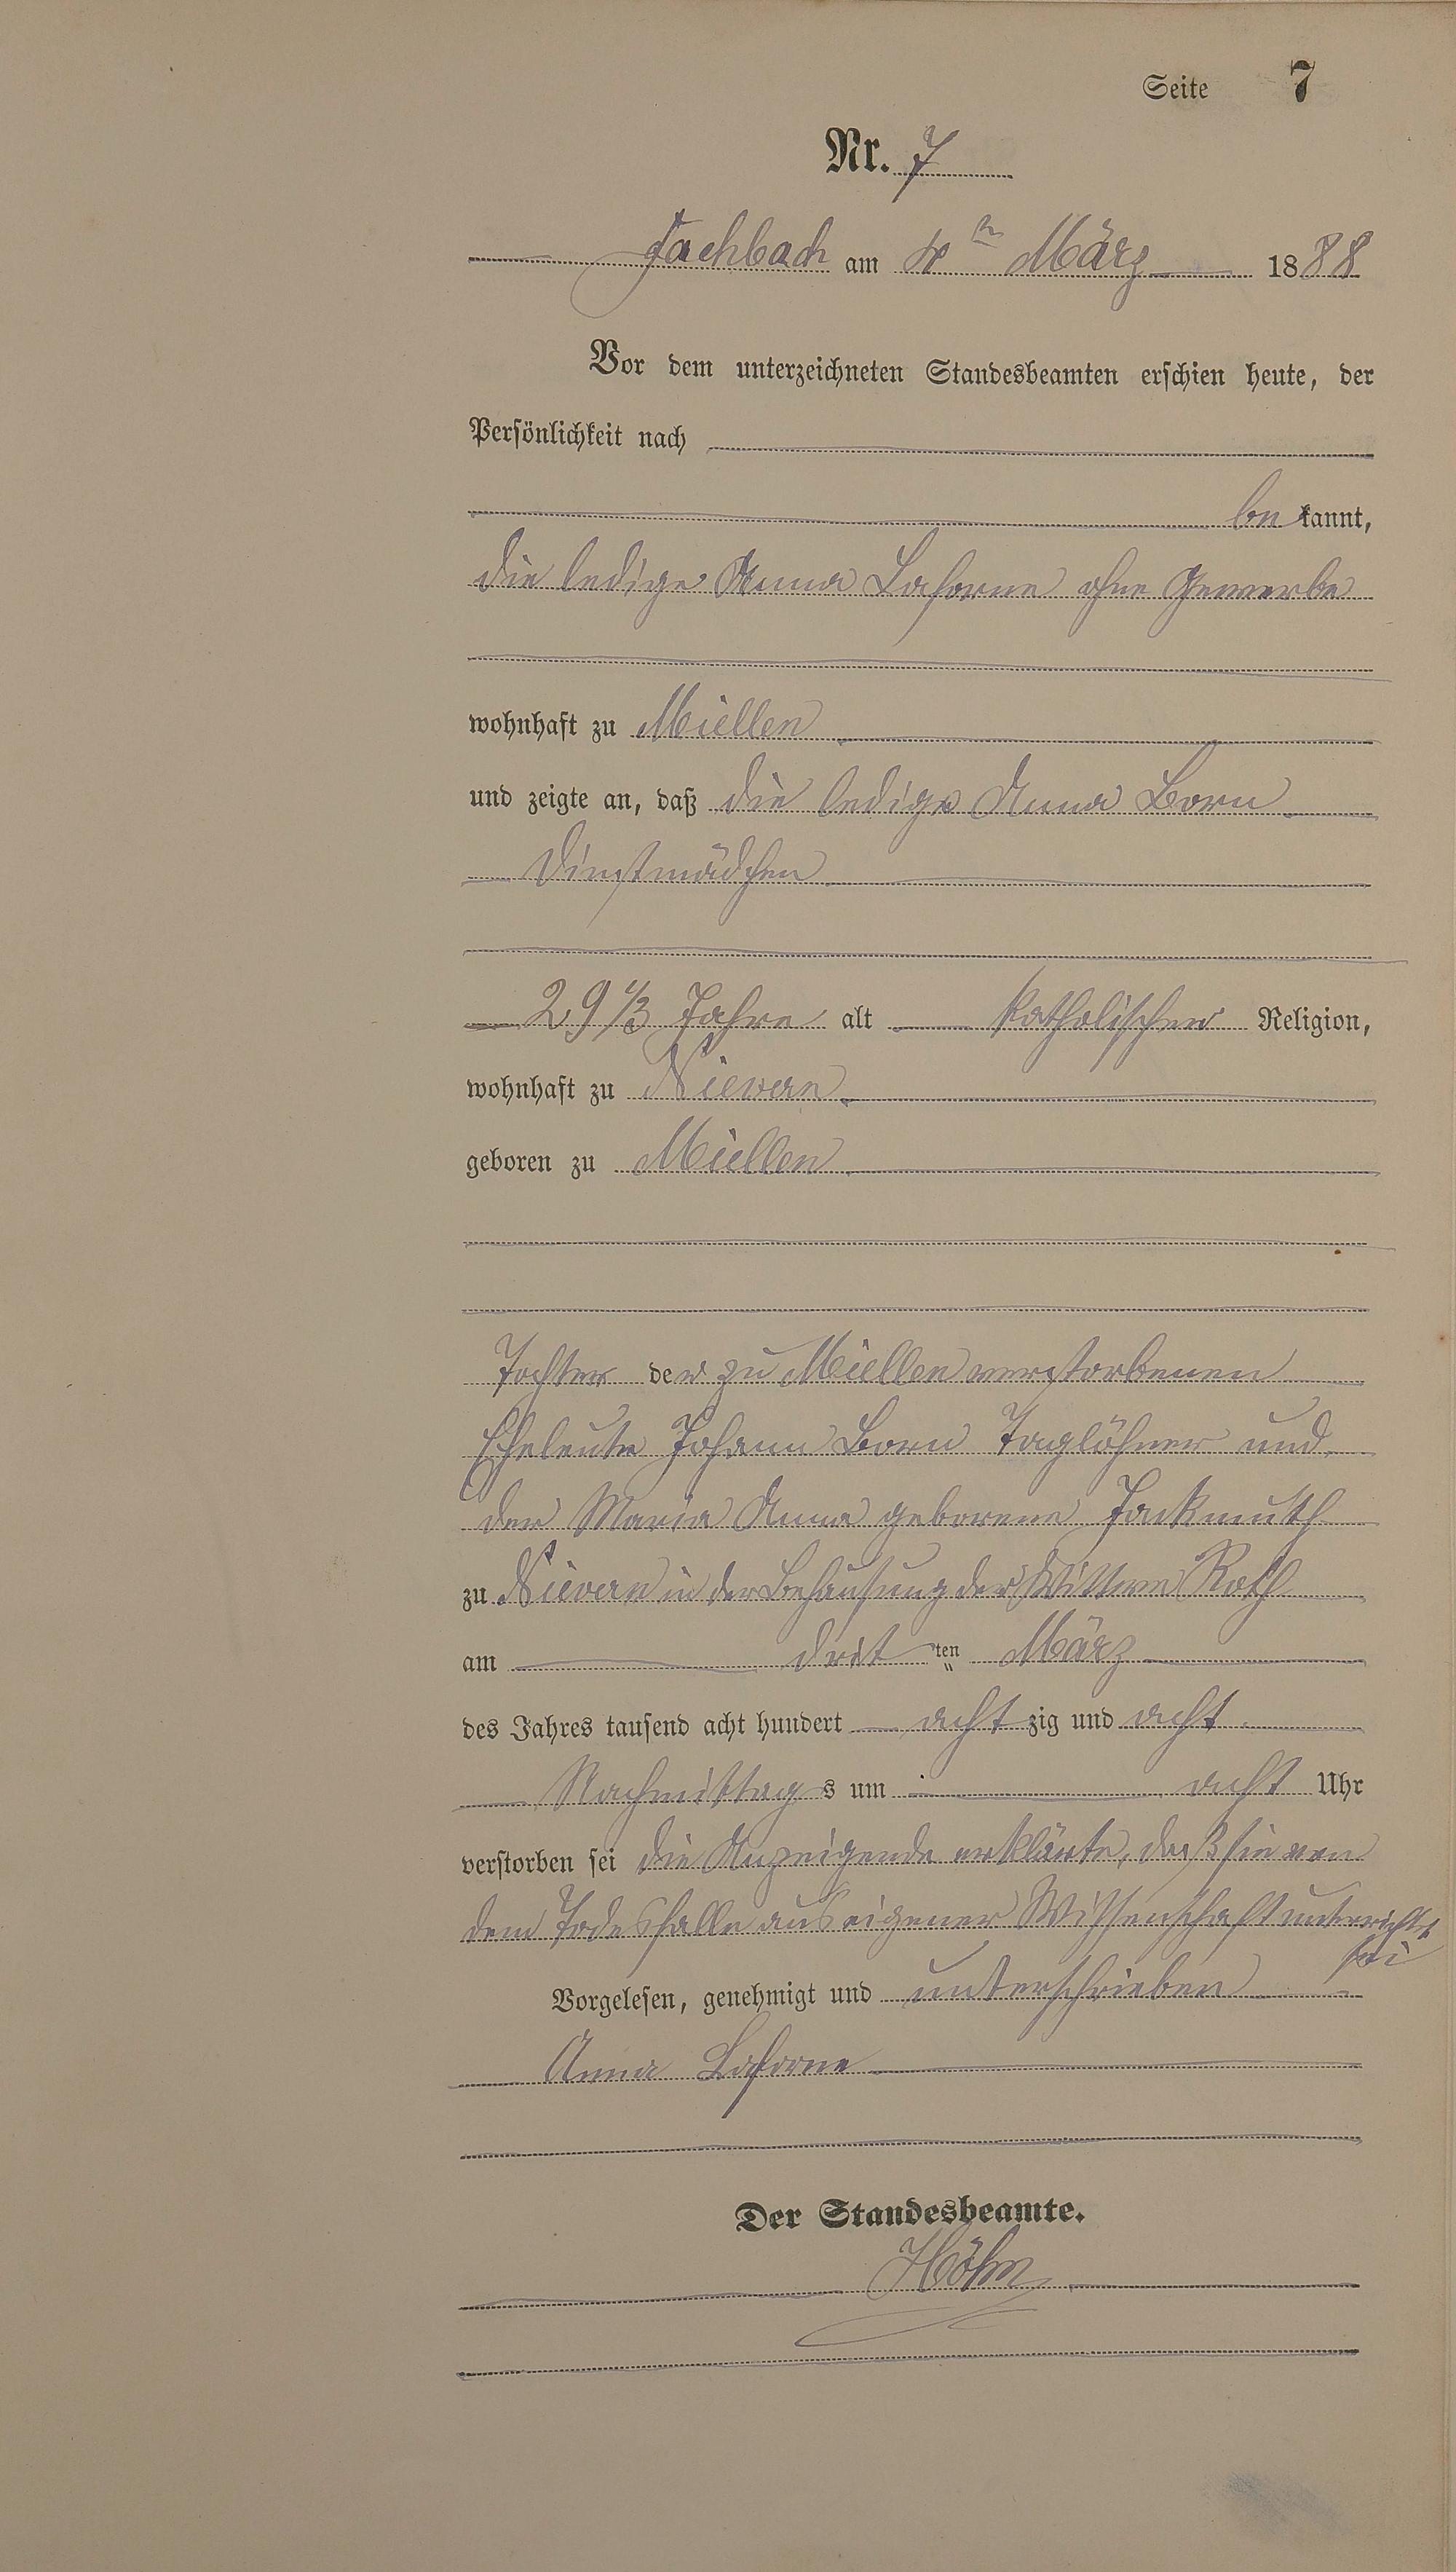 Seite 7
Nr. 7
Fachbach am 4ten März 1888
Vor dem unterzeichneten Standesbeamten erschien heute, der
Persönlichkeit nach
bekannt,
die ledige Anna Laforne ohne Gewerbe
wohnhaft zu Miellen
und zeigte an, daß die ledige Anna Born
Dinstmädchen
29 1/3 Jahre alt katholischer Religion,
wohnhaft zu Nievern
geboren zu Miellen
Tochter der zu Miellen verstorbenen
Eheleute Johann Born Taglöhner und
der Maria Anna geborene Jackmuth
zu Nievern in der Behausung der Wittwe Roth
am dritten März
des Jahres tausend acht hundert achtzig und acht
Nachmittags um acht Uhr
verstorben sei die Anzeigende erklärte, daß sie von
dem Todesfalle aus eigener Wissenschaft unterrichtet
sei
Vorgelesen, genehmigt und unterschrieben
Anna Laforne
Der Standesbeamte.
Höhn